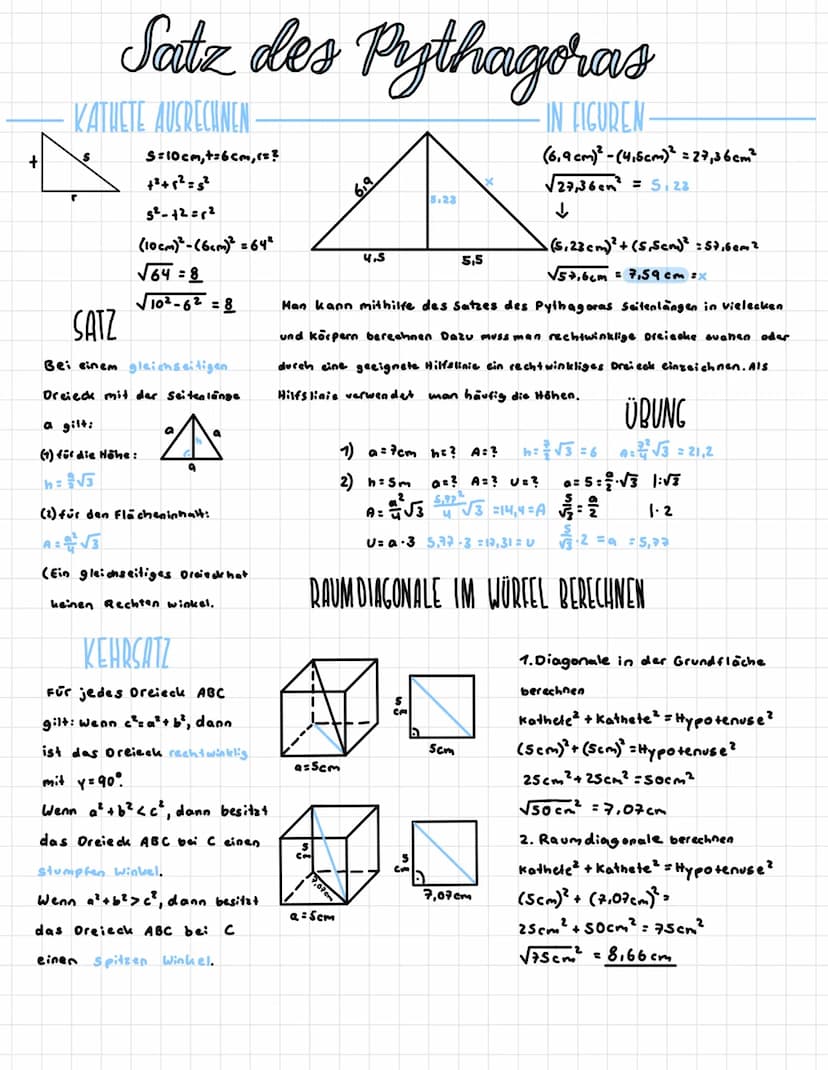 Satz des Pythagoras
KATHETE AUSRECHNEN
t
s
r
S=10cm, t=6cm, r=?
t²+r²=s²
s²-t2=r²
(10cm)²-(6cm)²=64²
√64 = 8
√10²-6² = 8
IN FIGUREN
6,9
5,23
x
4,5
5,5
(6,9cm)²-(4,5cm)²=27,36cm²
√27,36cm² = 5,23
↓
(5,23cm)²+(5,5cm)²=57,6cm²
√57,6cm = 7,59cm =x
Man kann mithilfe des Satzes des Pythagoras Seitenlängen in vielecken
und körpern berechnen Dazu muss man rechtwinklige Dreiecke suchen oder
durch eine geeignete Hilfslinie ein rechtwinkliges Dreieck einzeichnen. Als
Hilfslinie verwendet man häufig die Höhen.
SATZ
Bei einem gleichseitigen
Dreieck mit der Seitenlänge
a gilt:
a
a
h
a
(1) für die Höhe:
h=a/2√3
(2) für den Flächeninhalt:
A=a²/4√3
(Ein gleichseitiges Dreieck hat
keinen Rechten winkel.
ÜBUNG
1) a=7cm h=? A=? h=7/2√3=6 A=7²/4√3=21,2
2) h=5m a=? A=? U=? a=5=a/2·√3 |:√3
A=a²/4√3 5,77²/4√3=14,4=A 5/√3=a/2 |·2
U=a·3 5,77·3=17,31=U 5/√3·2=a=5,77
RAUMDIAGONALE IM WÜRFEL BERECHNEN
KEHRSATZ
Für jedes Dreieck ABC
gilt: Wenn c²=a²+b², dann
ist das Dreieck rechtwinklig
mit y=90°.
Wenn a²+b²<c², dann besitzt
das Dreieck ABC bei C einen
stumpfen Winkel.
Wenn a²+b²>c², dann besitzt
das Dreieck ABC bei C
einen spitzen Winkel.
a=5cm
5
cm
5cm
5
cm
7,07cm
a=5cm
5
cm
7,07cm
1. Diagonale in der Grundfläche
berechnen
Kathete²+Kathete²=Hypotenuse²
(5cm)²+(5cm)²=Hypotenuse²
25cm²+25cm²=50cm²
√50cm² =7,07cm
2. Raumdiagonale berechnen
Kathete²+Kathete²=Hypotenuse²
(5cm)²+(7,07cm)²=
25cm²+50cm²=75cm²
√75cm² = 8,66cm